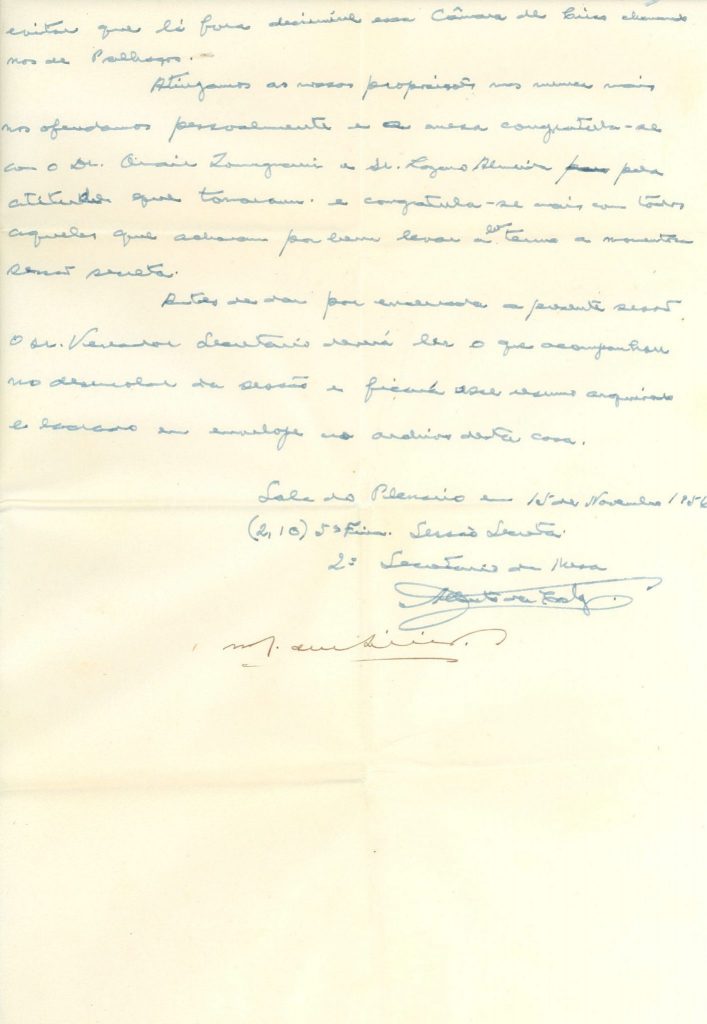 evitar que lá fora desimine essa Câmara de Circo chamando
nos de Palhaços.
Atinjamos as nossas proposições mas nunca mais
nos ofendamos pessoalmente e a mesa congratula-se
com o Dr. e Sr. Lazaro Almeida pela
atitudes que tomaram. e congratula-se mais com todos
aqueles que acharam por bem levar a bom termo a momentosa
sessão secreta.
Antes de dar por encerrada a presente sessão
O Sr. Vereador Secretario deverá ler o que acompanhou
no desenrolar da sessão e ficará esse resumo arquivado
e lacrado em envelope no archivo desta casa.
Sala do Plenario em 15 de Novembro 1956
(2,10) 5ª Feira. Sessão Secreta.
2º Secretario da Mesa